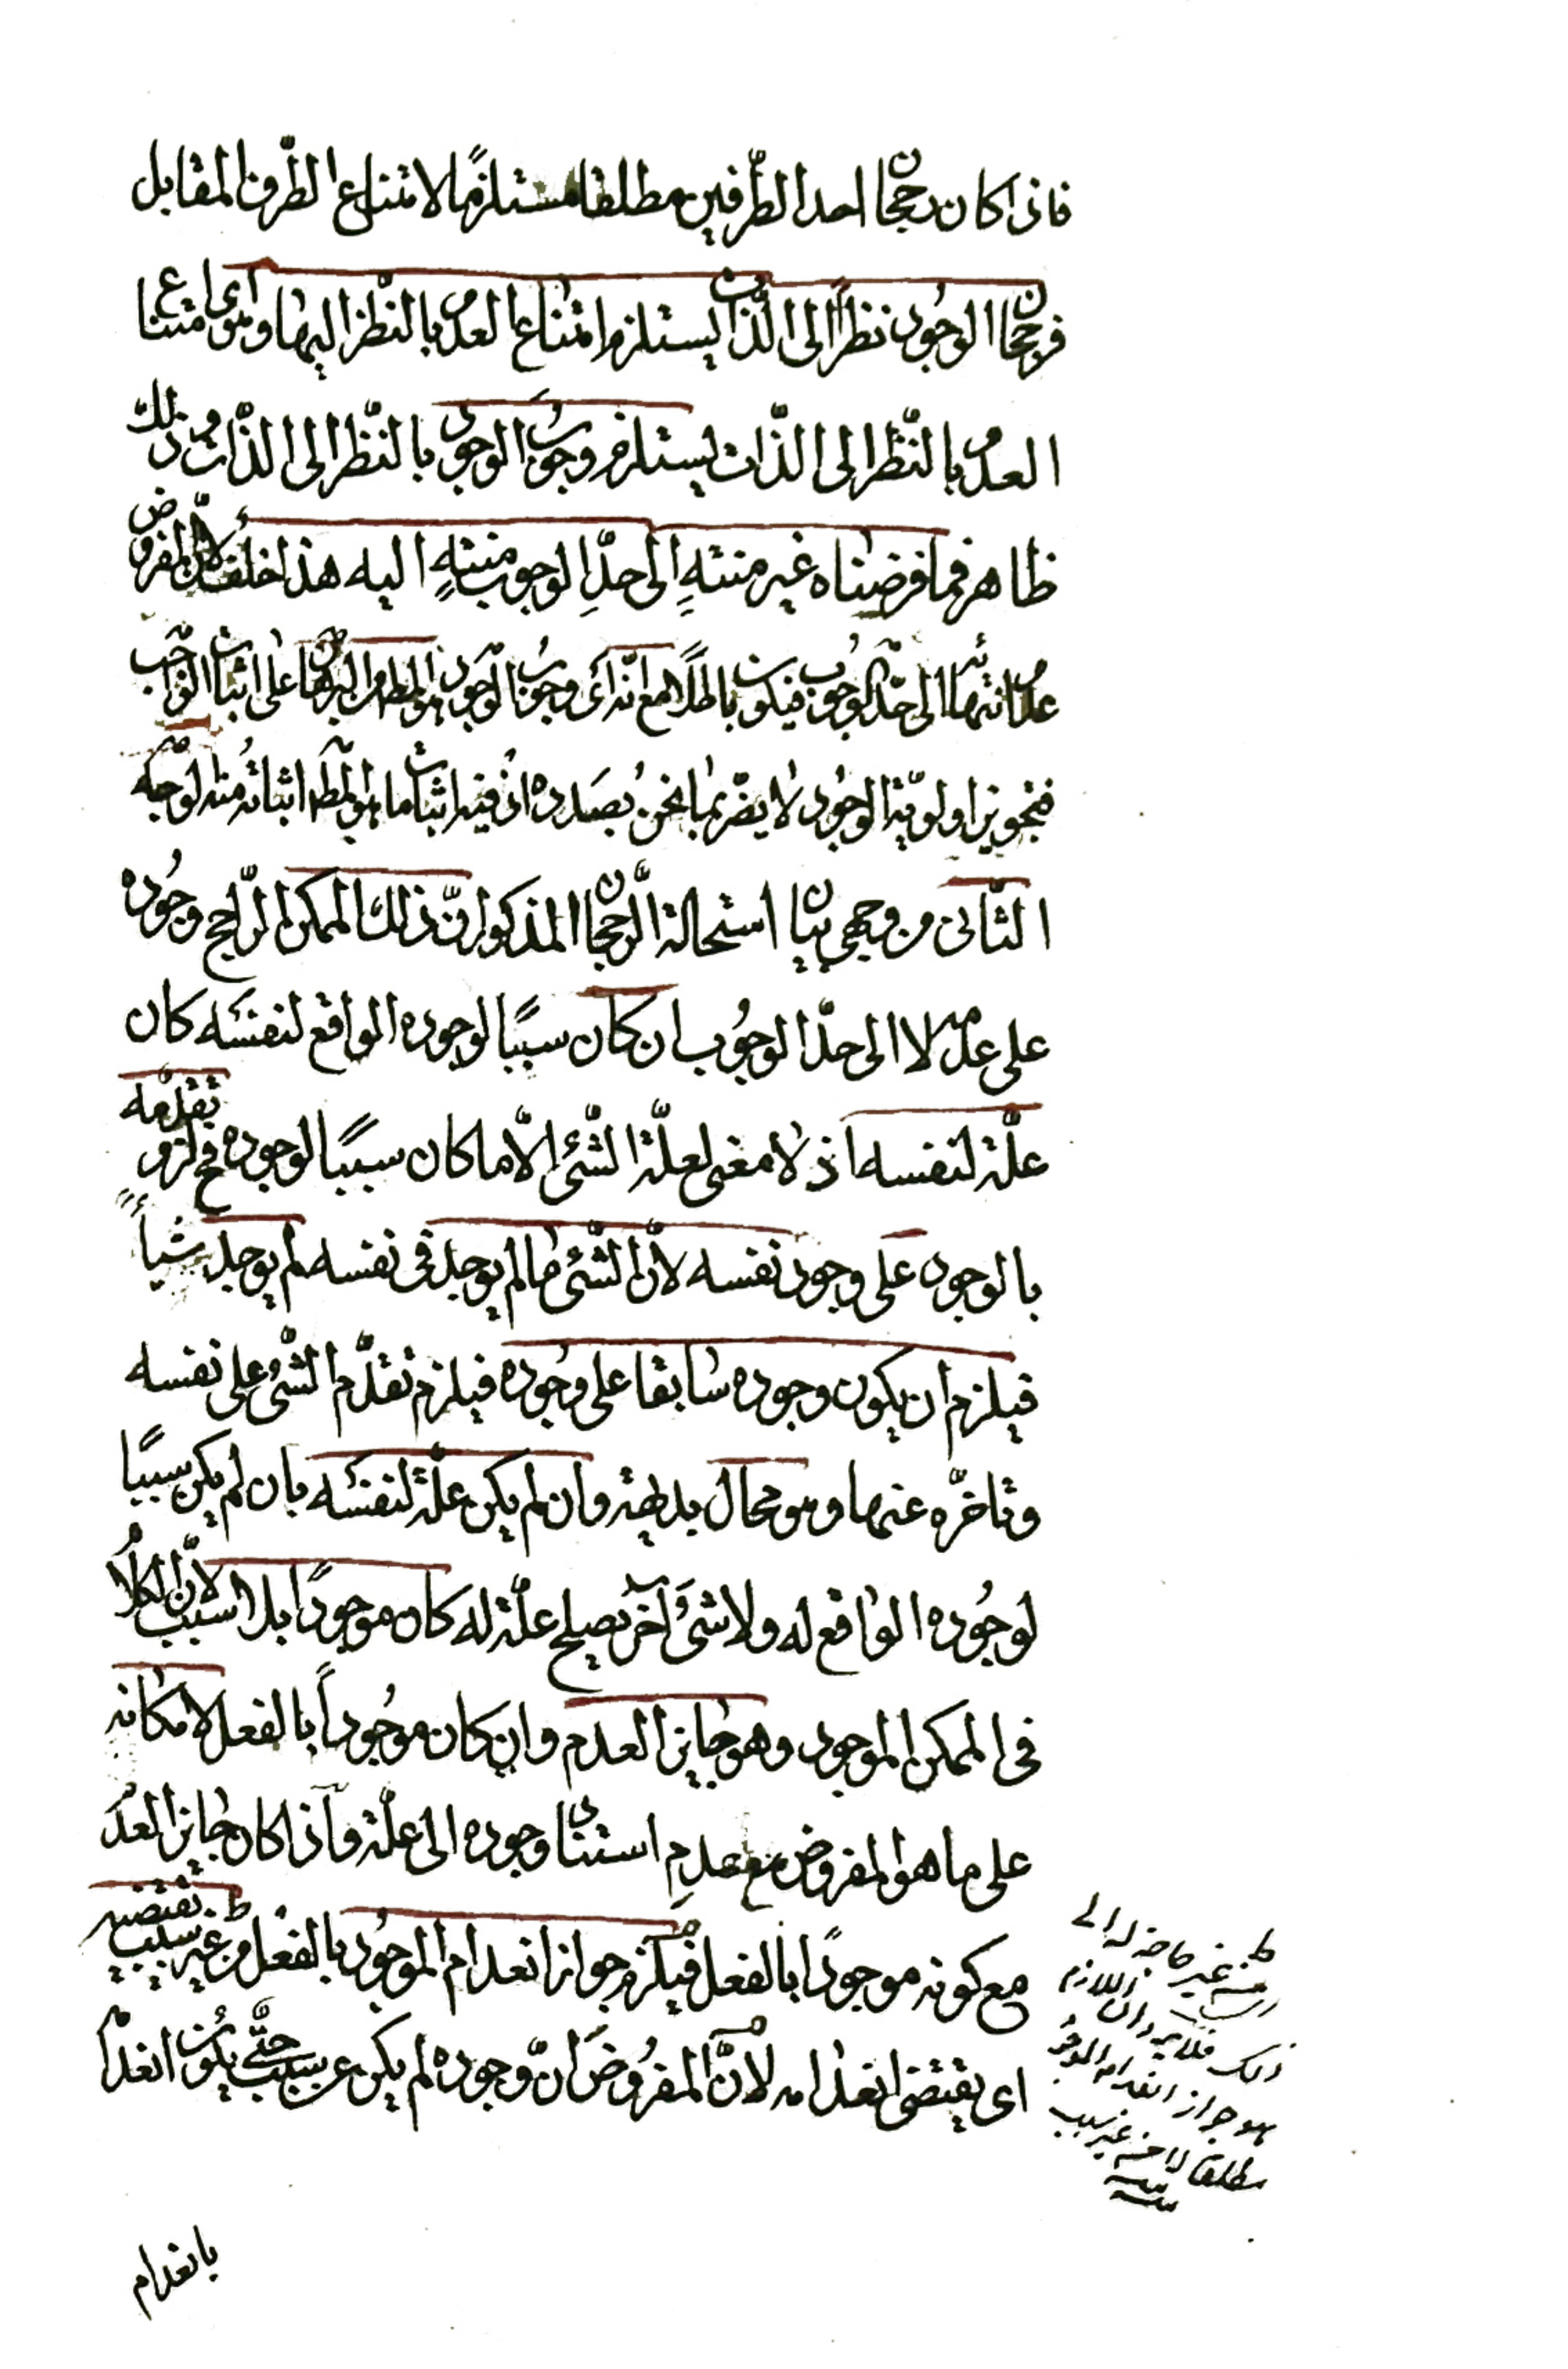 فاذا كان رجحان احد الطّرفين مطلقا مستلزمًا لامتناع الطّرف المقابل
فرجحان الوجود نظراً الى الذّات يستلزم امتناع العدم بالنّظر اليها وهو اى امتناع
العدم بالنّظر الى الذّات يستلزم وجوب الوجود بالنّظر الى الذّات وذلك
ظاهر فما فرضناه غير منتهٍ الى حدِّ الوجوب منتهٍ اليه هذا خلف لانّ المفروض
عدم انتهائه الى حدّ الوجوب فيكون باطلًا مع انّه اى وجوب الوجود هو المط من البرهان على اثبات الواجب
فتجويز اولويّة الوجود لا يضرّ بما نحن بصدده اذ فيه اثبات ما هو المط اثباته منه الوجه
الثّانى من وجهى بيان استحالة الرّجحان المذكور انّ ذلك الممكن الرّاجح وجوده
على عدمه لا الى حدّ الوجوب ان كان سببًا لوجوده الواقع لنفسه كان
علّة لنفسه اذ لا معنى لعلّة الشّئ الّا ما كان سببًا لوجوده فح لزم تقدّمه
بالوجود على وجود نفسه لانّ الشّئ ما لم يوجد فى نفسه لم يوجد شيأً
فيلزم ان يكون وجوده سابقا على وجوده فيلزم تقدّم الشّئ على نفسه
وتاخّره عنها وهو محال بديهة وان لم يكن علّة لنفسه بان لم يكن سببًا
لوجوده الواقع له ولا شئ آخر يصلح علّة له كان موجودًا بلا سبب لانّ الكلام
فى الممكن الموجود وهو جايز العدم وان كان موجوداً بالفعل لامكانه
على ما هو المفروض مع عدمِ استناد وجوده الى علّة واذا كان جايز العدم
مع كونه موجودًا بالفعل فيلزم جواز انعدام الموجود بالفعل من غير سبب يقتضيه
اى يقتضى انعدامه لانّ المفروض انّ وجوده لم يكن عن سبب حتّى يكون انعدامه
من غير حاجة له الى
ذلك فلا يرد ان اللازم
هو جواز انعدام الموجود
مطلقا لا من غير سبب
منه
بانعدام